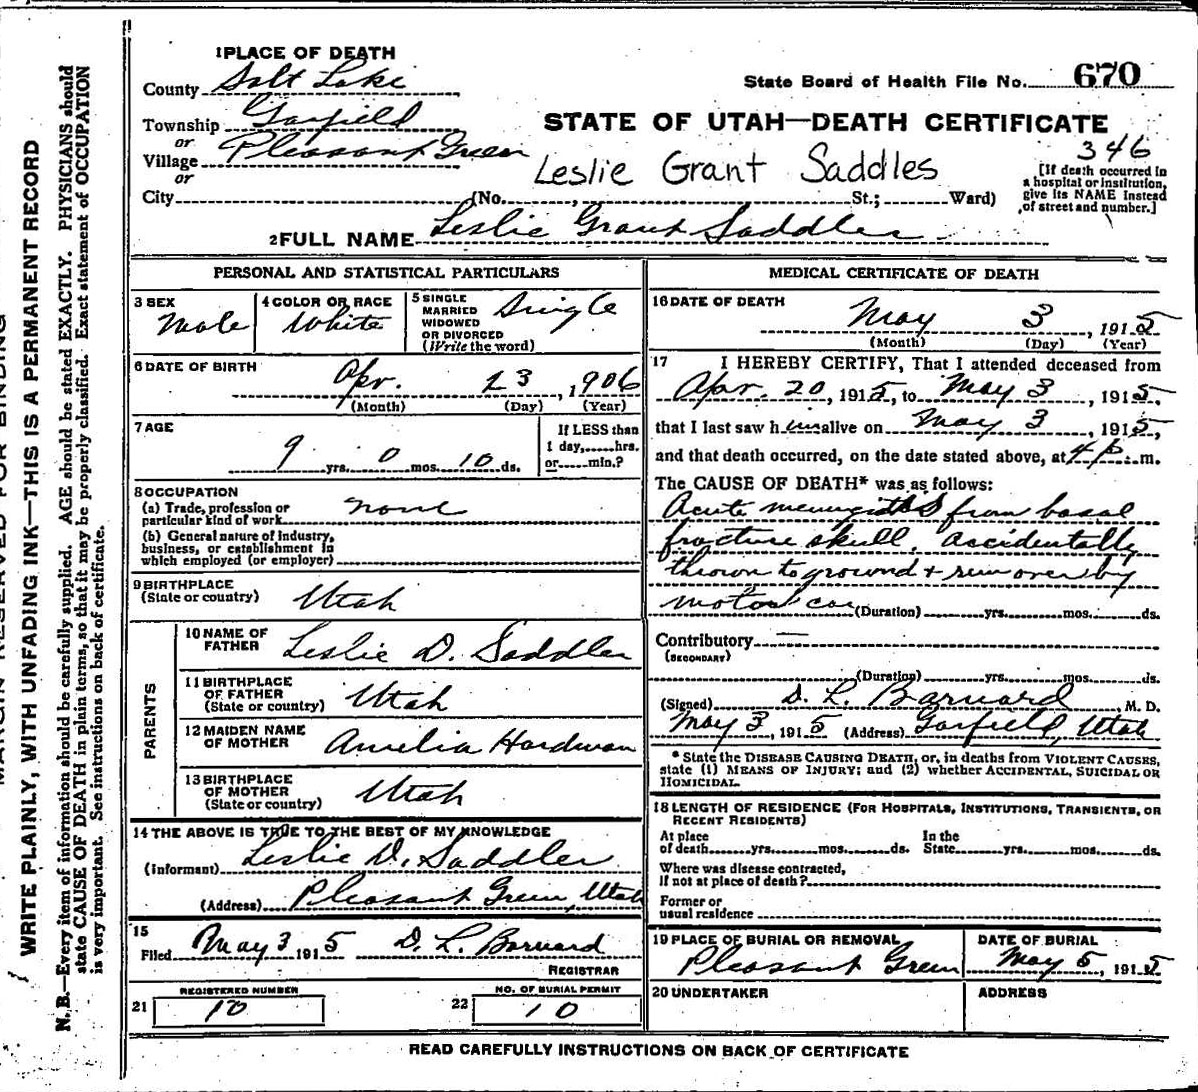 1 PLACE OF DEATH
County Salt Lake
State Board of Health File No. 670
Township Garfield
or
Village Pleasant Green
or
City
STATE OF UTAH—DEATH CERTIFICATE
346
Leslie Grant Saddles
(No. , St.; Ward)
[If death occurred in
a hospital or institution,
give its NAME instead
of street and number.]
2 FULL NAME Leslie Grant Saddler
PERSONAL AND STATISTICAL PARTICULARS
3 SEX
Male
4 COLOR OR RACE
White
5 SINGLE
MARRIED
WIDOWED
OR DIVORCED
(Write the word)
Single
6 DATE OF BIRTH
Apr. 23, 1906
(Month) (Day) (Year)
7 AGE
9 yrs. 0 mos. 10 ds.
If LESS than
1 day, hrs.
or min.?
8 OCCUPATION
(a) Trade, profession or
particular kind of work none
(b) General nature of industry,
business, or establishment in
which employed (or employer)
9 BIRTHPLACE
(State or country) Utah
PARENTS
10 NAME OF
FATHER Leslie D. Saddler
11 BIRTHPLACE
OF FATHER
(State or country) Utah
12 MAIDEN NAME
OF MOTHER Amelia Hardman
13 BIRTHPLACE
OF MOTHER
(State or country) Utah
14 THE ABOVE IS TRUE TO THE BEST OF MY KNOWLEDGE
(Informant) Leslie D. Saddler
(Address) Pleasant Green, Utah
15
Filed May 3 1915 D. L. Barnard
REGISTRAR
REGISTERED NUMBER
21 10
NO. OF BURIAL PERMIT
22 10
MEDICAL CERTIFICATE OF DEATH
16 DATE OF DEATH
May 3, 1915
(Month) (Day) (Year)
17 I HEREBY CERTIFY, That I attended deceased from
Apr. 20, 1915, to May 3, 1915,
that I last saw him alive on May 3, 1915,
and that death occurred, on the date stated above, at 4 p. m.
The CAUSE OF DEATH* was as follows:
Acute meningitis from basal
fracture skull, accidentally
thrown to ground & run over by
motor car
(Duration) yrs. mos. ds.
Contributory —
(SECONDARY)
(Duration) yrs. mos. ds.
(Signed) D. L. Barnard, M. D.
May 3, 1915 (Address) Garfield, Utah
* State the DISEASE CAUSING DEATH, or, in deaths from VIOLENT CAUSES,
state (1) MEANS OF INJURY; and (2) whether ACCIDENTAL, SUICIDAL OR
HOMICIDAL.
18 LENGTH OF RESIDENCE (FOR HOSPITALS, INSTITUTIONS, TRANSIENTS, OR
RECENT RESIDENTS)
At place
of death yrs. mos. ds.
In the
State yrs. mos. ds.
Where was disease contracted,
if not at place of death?
Former or
usual residence
19 PLACE OF BURIAL OR REMOVAL
Pleasant Green
DATE OF BURIAL
May 5, 1915
20 UNDERTAKER
ADDRESS
READ CAREFULLY INSTRUCTIONS ON BACK OF CERTIFICATE
WRITE PLAINLY, WITH UNFADING INK—THIS IS A PERMANENT RECORD
N. B.—Every item of information should be carefully supplied. AGE should be stated EXACTLY. PHYSICIANS should
state CAUSE OF DEATH in plain terms, so that it may be properly classified. Exact statement of OCCUPATION
is very important. See instructions on back of certificate.